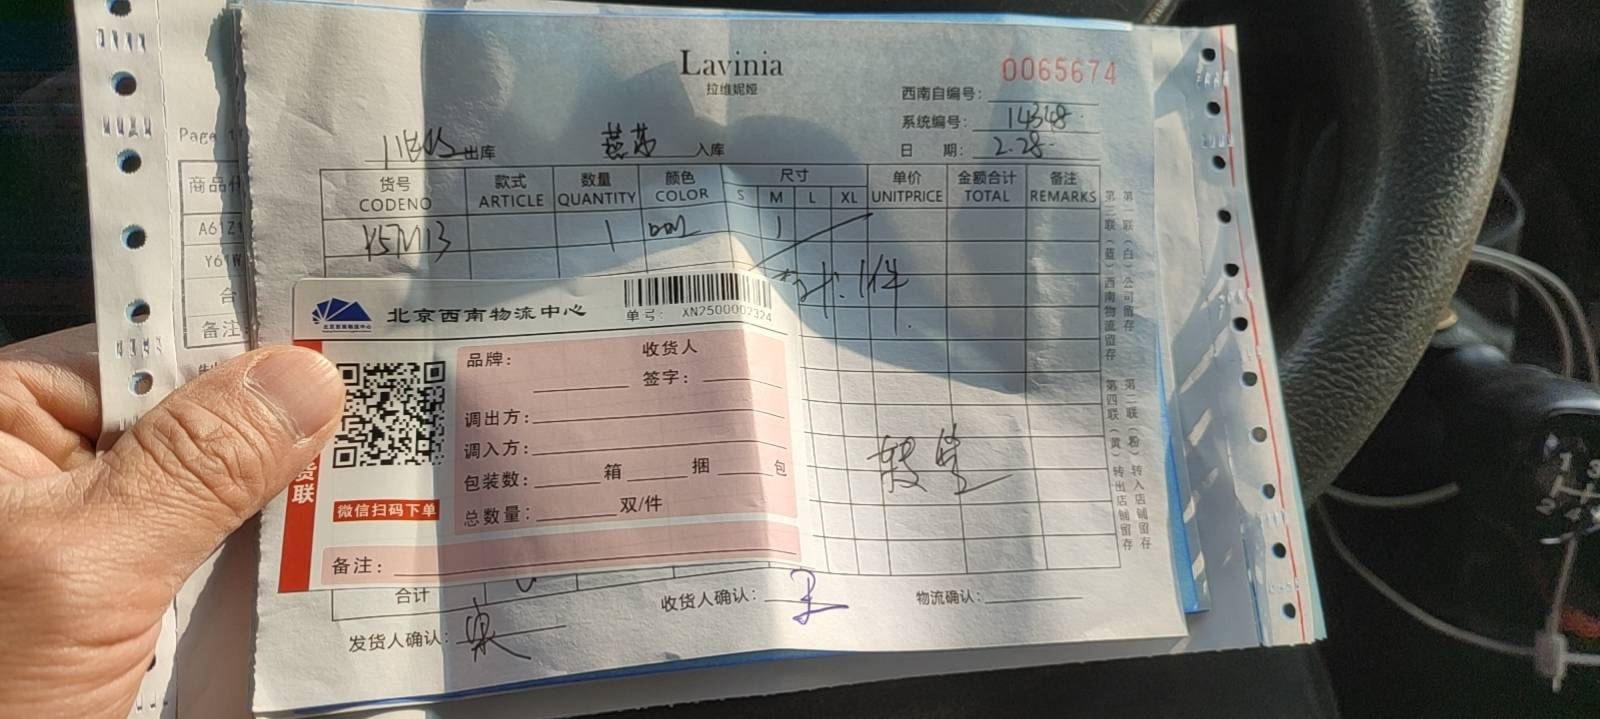 Lavinia
拉维妮娅
0065674
西南自编号:
系统编号: 14348
日 期: 2.28
出库 燕莎 入库
货号 款式 数量 颜色 尺寸 单价 金额合计 备注
CODENO ARTICLE QUANTITY COLOR S M L XL UNITPRICE TOTAL REMARKS
Y5M13 1 002 1
1件
北京西南物流中心
北京西南物流中心
单号: XN2500002324
品牌: 收货人
签字:
调出方:
调入方:
包装数: 箱 捆 包
总数量: 双/件
货联
微信扫码下单
备注:
合计
收货人确认:
物流确认:
发货人确认:
第一联(白)公司留存
第三联(蓝)西南物流留存
第二联(粉)转入店铺留存
第四联(黄)转出店铺留存
Page
商品
A61Z1
Y61W
合
备注